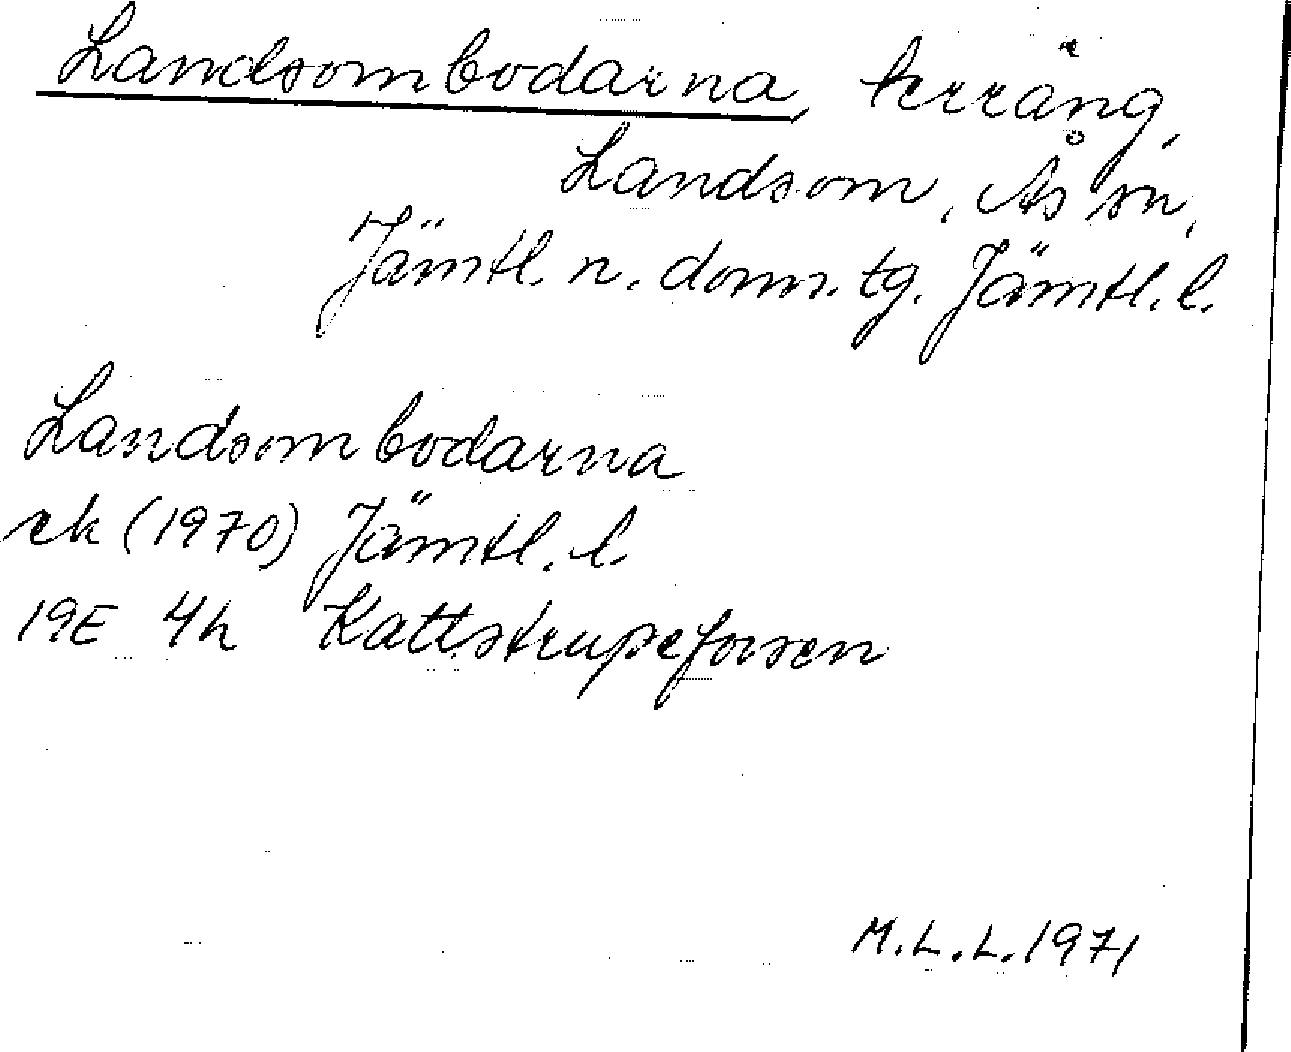 Landsombodarna, terräng,
Landsom, Ås sn,
Jämtl. n. doms. tg. Jämtl. l.
Landsombodarna
ek (1970) Jämtl. l.
19E 4h Kattstrupeforsen
M.L.L. 1971